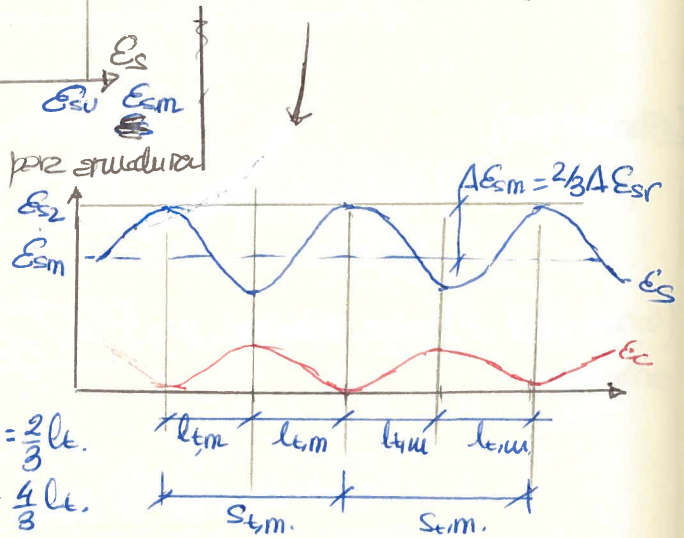 εs
εsu εsm
para armadura
εs2
Δεsm = 2/3 Δεsr
εsm
εs
εc
= 2/3 lt.
lt,m lt,m lt,m lt,m
4/3 lt.
St,m. St,m.